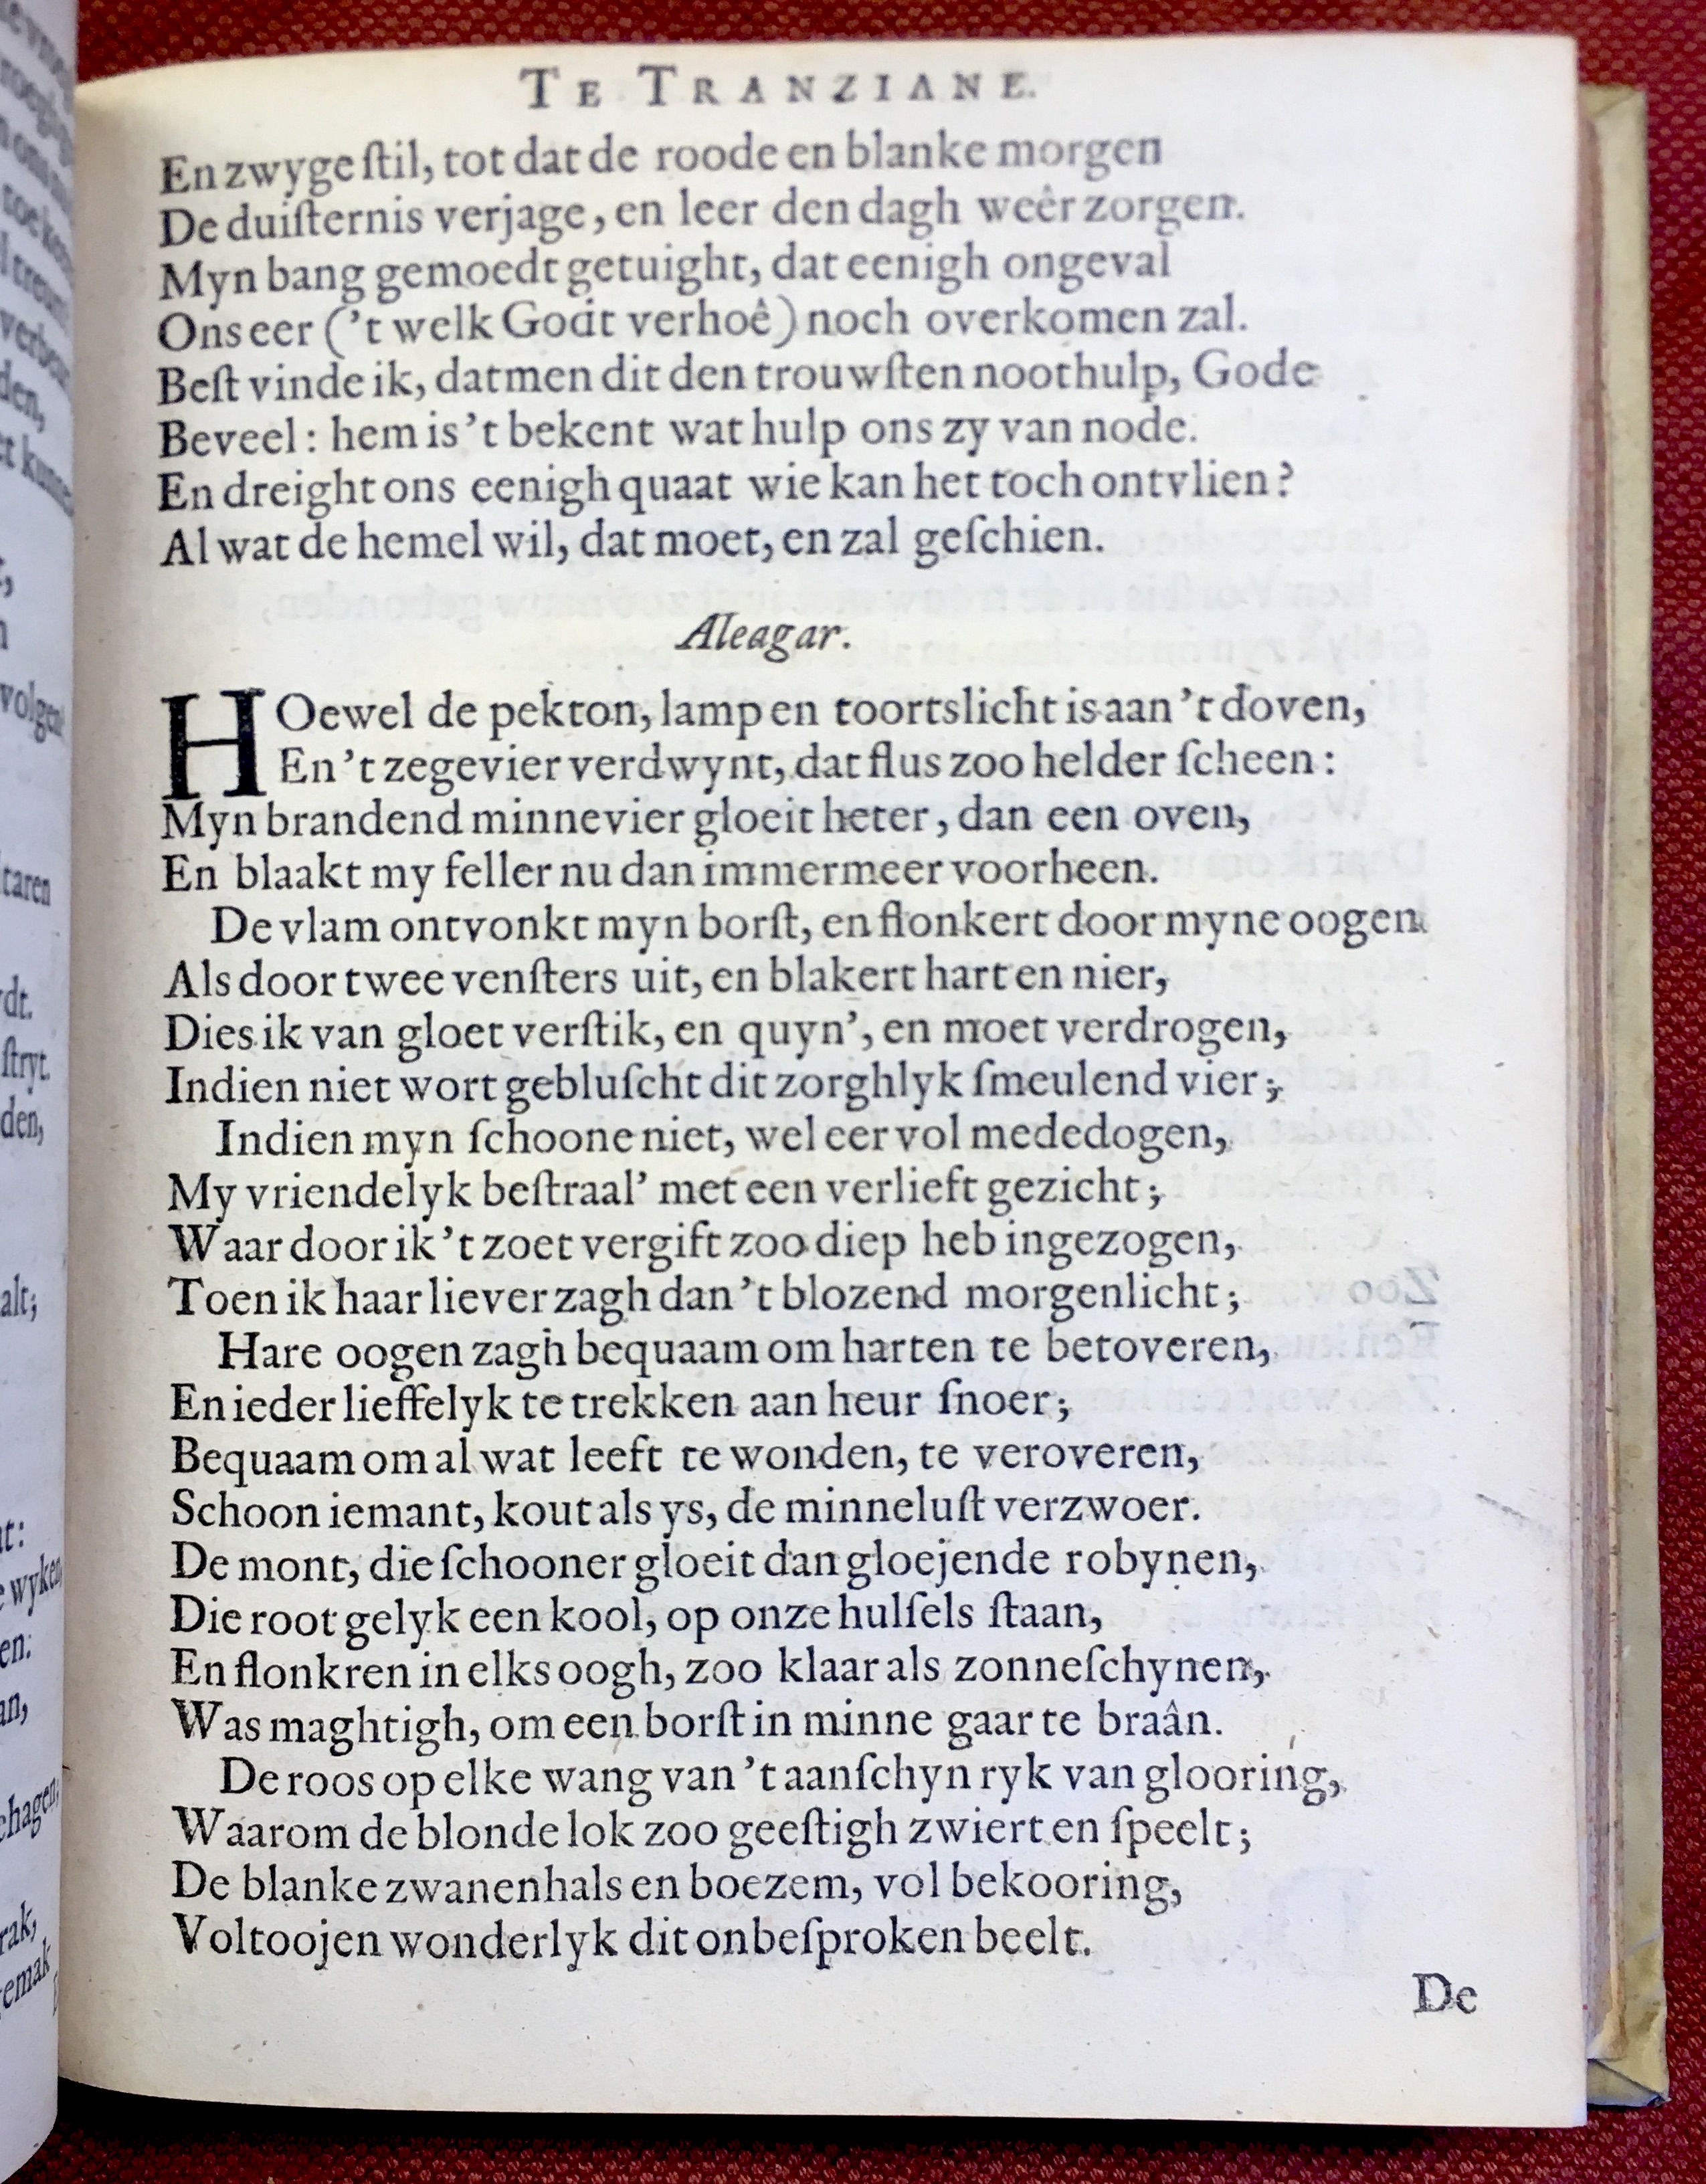 TE TRANZIANE.
En zwyge ſtil, tot dat de roode en blanke morgen
De duiſternis verjage, en leer den dagh weêr zorgen.
Myn bang gemoedt getuight, dat eenigh ongeval
Ons eer ('t welk Godt verhoê) noch overkomen zal.
Beſt vinde ik, datmen dit den trouwſten noothulp, Gode
Beveel: hem is 't bekent wat hulp ons zy van node.
En dreight ons eenigh quaat wie kan het toch ontvlien?
Al wat de hemel wil, dat moet, en zal geſchien.
Aleagar.
HOewel de pekton, lamp en toortslicht is aan 't doven,
En 't zegevier verdwynt, dat flus zoo helder ſcheen:
Myn brandend minnevier gloeit heter, dan een oven,
En blaakt my feller nu dan immermeer voorheen.
De vlam ontvonkt myn borſt, en flonkert door myne oogen
Als door twee venſters uit, en blakert hart en nier,
Dies ik van gloet verſtik, en quyn', en moet verdrogen,
Indien niet wort gebluſcht dit zorghlyk ſmeulend vier;
Indien myn ſchoone niet, wel eer vol mededogen,
My vriendelyk beſtraal' met een verlieft gezicht;
Waar door ik 't zoet vergift zoo diep heb ingezogen,
Toen ik haar liever zagh dan 't blozend morgenlicht;
Hare oogen zagh bequaam om harten te betoveren,
En ieder lieffelyk te trekken aan heur ſnoer;
Bequaam om al wat leeft te wonden, te veroveren,
Schoon iemant, kout als ys, de minneluſt verzwoer.
De mont, die ſchooner gloeit dan gloejende robynen,
Die root gelyk een kool, op onze hulſels ſtaan,
En flonkren in elks oogh, zoo klaar als zonneſchynen,
Was maghtigh, om een borſt in minne gaar te braân.
De roos op elke wang van 't aanſchyn ryk van glooring,
Waarom de blonde lok zoo geeſtigh zwiert en ſpeelt;
De blanke zwanenhals en boezem, vol bekooring,
Voltoojen wonderlyk dit onbeſproken beelt.
De